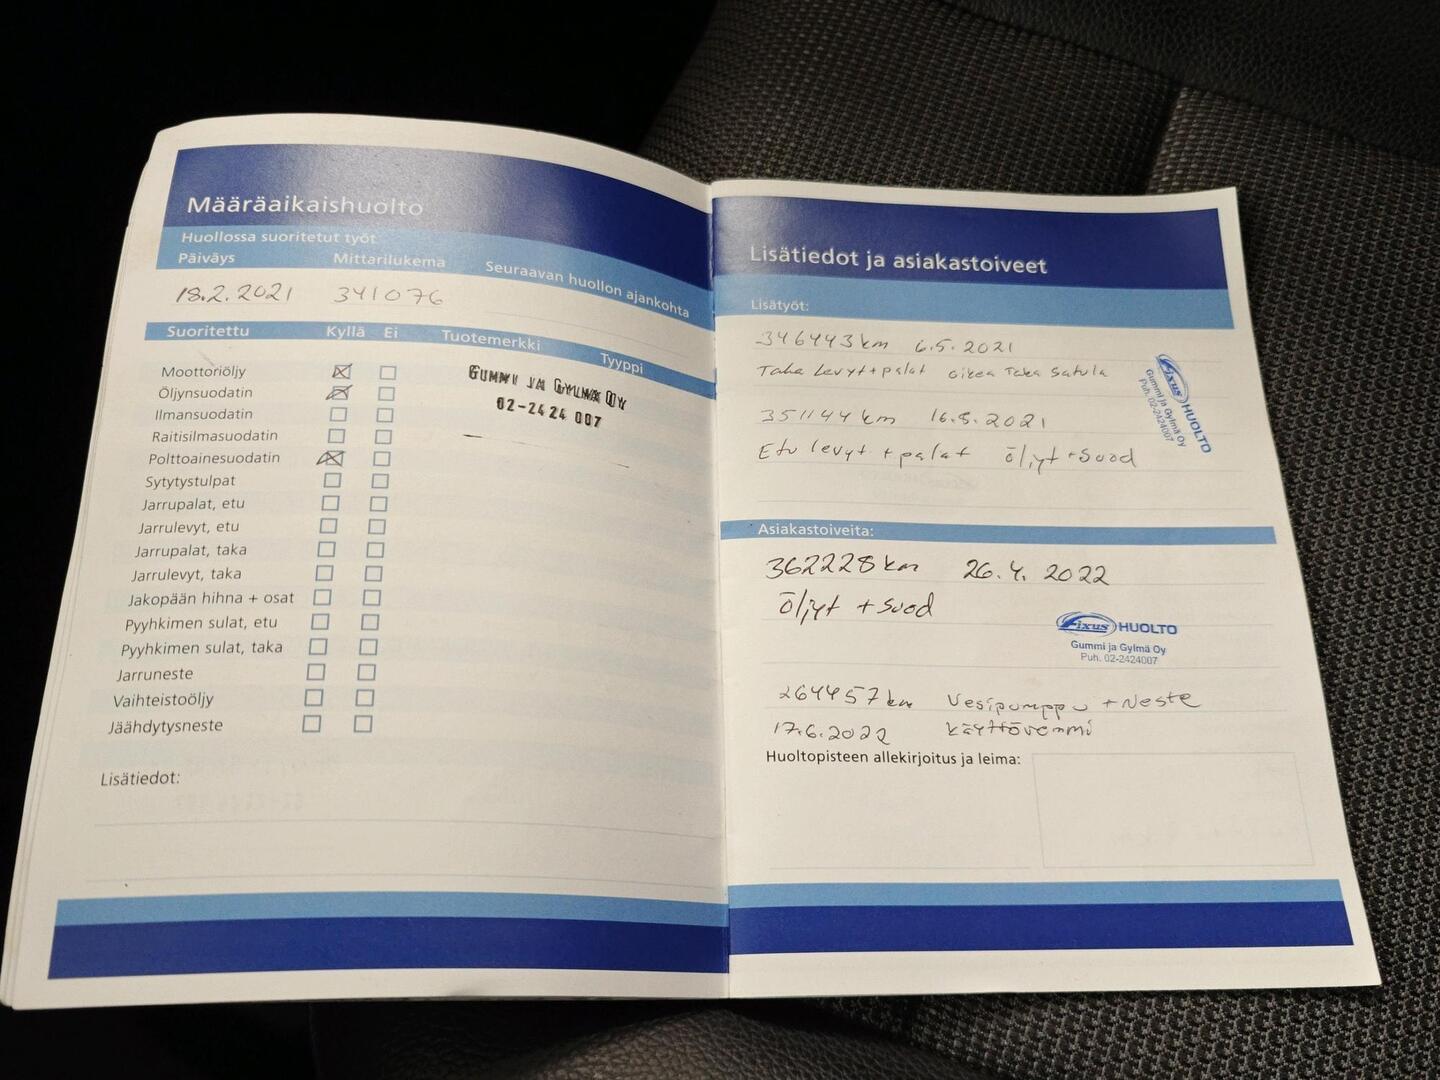 Määräaikaishuolto
Huollossa suoritetut työt
Päiväys Mittarilukema Seuraavan huollon ajankohta
18.2.2021 341076
Suoritettu Kyllä Ei Tuotemerkki Tyyppi
Moottoriöljy
Öljynsuodatin
Ilmansuodatin
Raitisilmasuodatin
Polttoainesuodatin
Sytytystulpat
Jarrupalat, etu
Jarrulevyt, etu
Jarrupalat, taka
Jarrulevyt, taka
Jakopään hihna + osat
Pyyhkimen sulat, etu
Pyyhkimen sulat, taka
Jarruneste
Vaihteistoöljy
Jäähdytysneste
GUMMI JA GYLMÄ OY
02-2424 007
Lisätiedot:
Lisätiedot ja asiakastoiveet
Lisätyöt:
346443 km 6.5.2021
Taka levyt + palat oikea taka satula
351144 km 16.8.2021
Etu levyt + palat öljyt + suod
Fixus HUOLTO
Gummi ja Gylmä Oy
Puh. 02-2424007
Asiakastoiveita:
362228 km 26.4.2022
öljyt + suod
Fixus HUOLTO
Gummi ja Gylmä Oy
Puh. 02-2424007
264457 km Vesipumppu + Neste
17.6.2022 käyttövemmi
Huoltopisteen allekirjoitus ja leima: